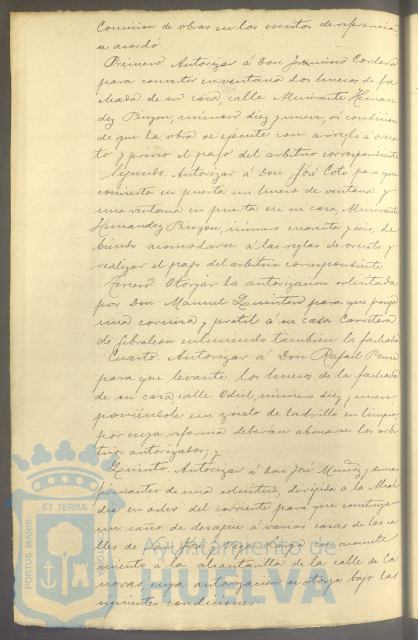 Comision de obras en los escritos de referencia,
se acordó
Primero. Autorizar á Don Cordero
para convertir en ventana dos huecos de fa
chada de su casa, calle Almirante Hernan
dez Pinzon, número diez y nueve, á condicion
de que la obra se ejecute con arreglo á orna
to y previo el pago del arbitrio correspondiente
Segundo. Autorizar á Don José Coto para que
convierta en puerta un hueco de ventana y
una ventana en puerta en su casa, Almirante
Hernandez Pinzon, número cuarenta y seis, de
biendo acomodarse á las reglas de ornato y
realizar el pago del arbitrio correspondiente
Tercero. Otorgar la autorizacion solicitada
por Don Manuel Quintero para que ponga
una cornisa y pretil á su casa Carretera
de Gibraleon enluciendo tambien la fachada
Cuarto. Autorizar á Don Rafael Ponce
para que levante los huecos de la fachada
de su casa, calle Odiel, número diez y nueve
poniéndole un zócalo de ladrillo en limpio,
por cuya reforma deberán abonarse los arbi
trios autorizados; y
Quinto. Autorizar á Don José Muñoz y demas
firmantes de una solicitud, dirijida á la Alcal
dia en ocho del corriente para que construyan
un caño de desagüe á varias casas de las ca
lles de San José y Vega Larga con
miento á la alcantarilla de la calle de Cá
novas, cuya autorizacion se otorga bajo las
siguientes condiciones:
PORTUS MARIS
ET TERRAE
Ayuntamiento de
HUELVA